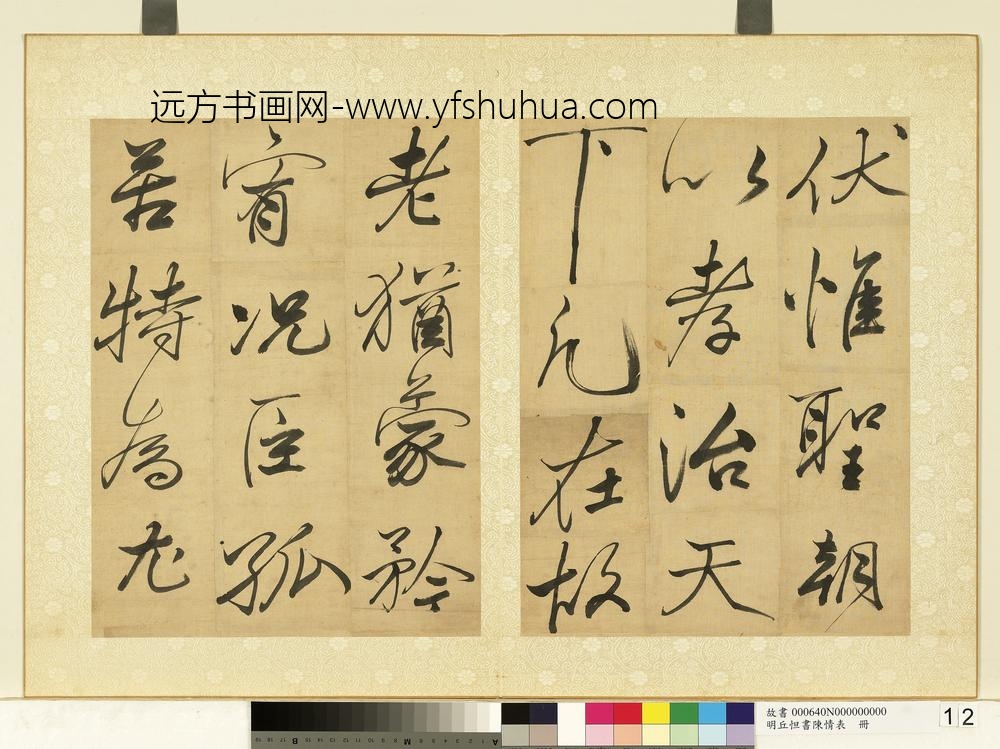 远方书画网-www.yfshuhua.com
伏惟聖朝
以孝治天
下凡在故
老猶蒙矜
宥况臣孤
苦特為尤
故書 000640N000000000
明丘怛書陳情表 冊
12